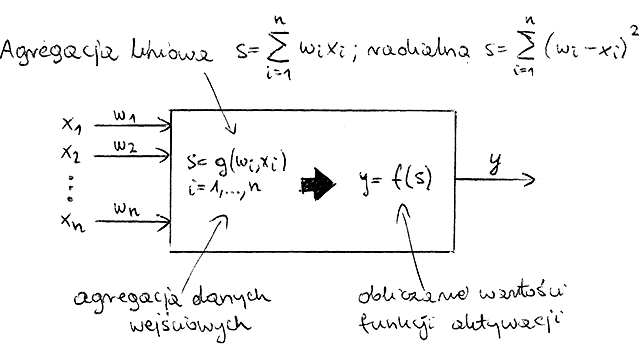 Agregacja liniowa s=∑ⁿᵢ₌₁ wᵢxᵢ; radialna s=∑ⁿᵢ₌₁ (wᵢ-xᵢ)²
x₁ w₁
x₂ w₂
⋮
xₙ wₙ
s= g(wᵢ,xᵢ)
i=1,...,n
y= f(s)
y
agregacja danych
wejściowych
obliczanie wartości
funkcji aktywacji